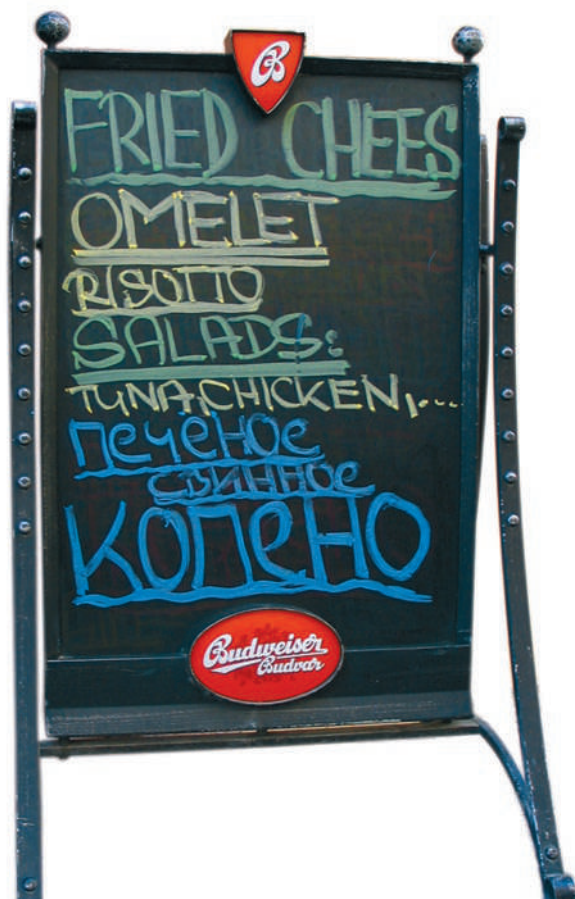 B
FRIED CHEES
OMELET
RISOTTO
SALADS:
TUNA, CHICKEN,...
печёное
свинное
КОПеНО
Budweiser
Budvar